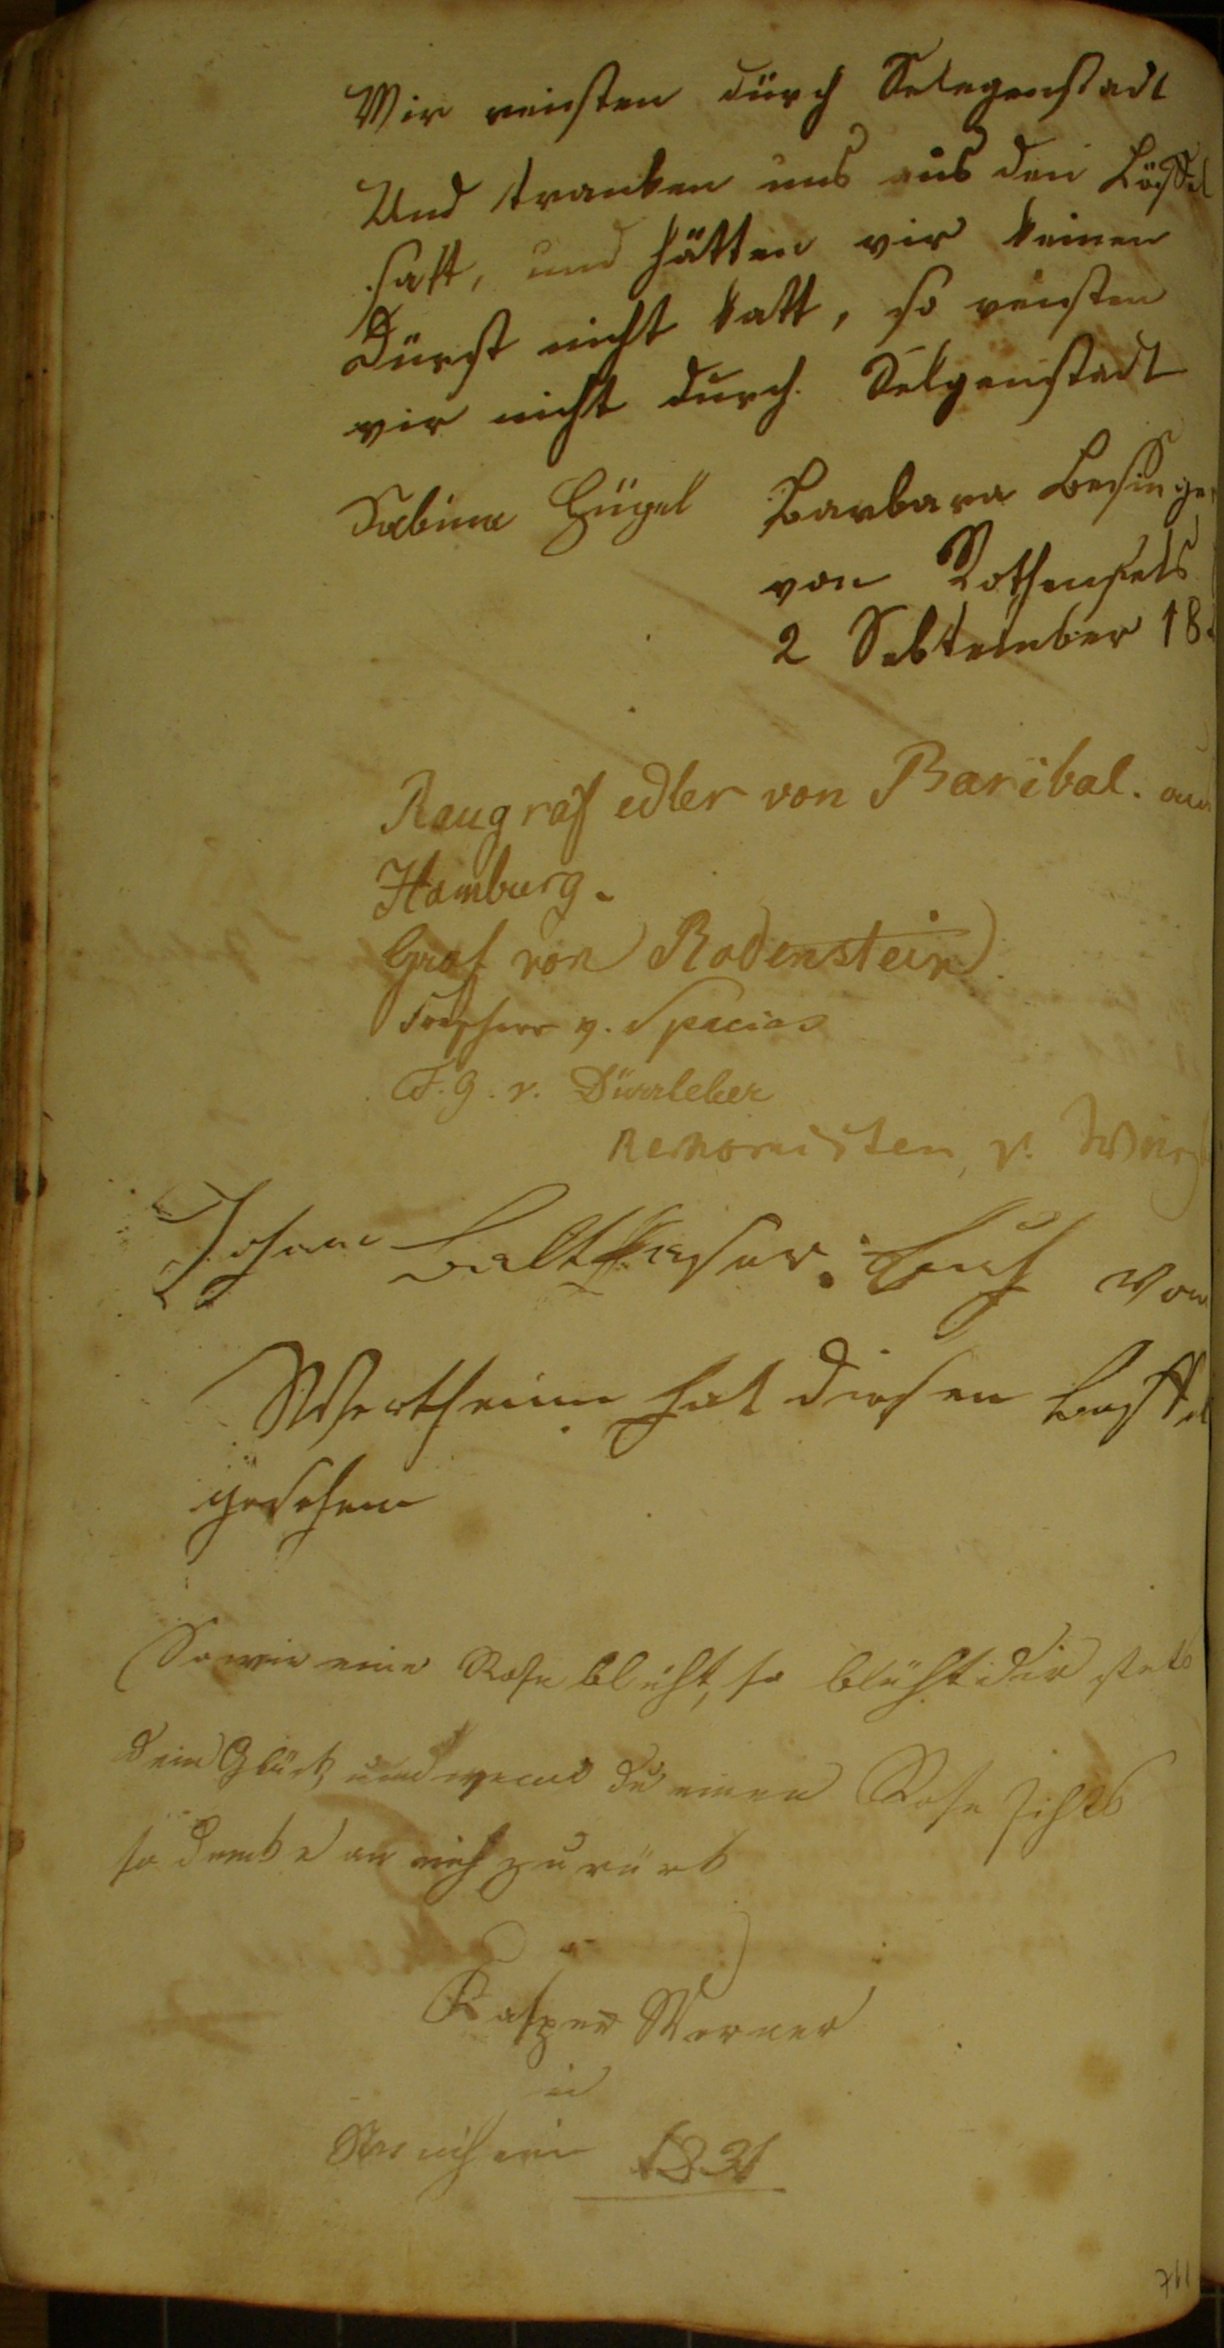 Wir reisten dürch Selegenstadt
Und tranken uns aus den Löffel
satt, und hätten wir keinen
Dürst nicht katt, so reisten
wir nicht durch Selgenstadt
Sabina Hügel Barbara Besinger
von Rothenfels
2 Sebtember 18
Raugraf edler von Baribal. aus
Hamburg.
Graf von Rodenstein
Freyherr v. Specias
v. Dürrleber
v.
Johann Balthasar von
Wertheim hat diesen Leffel
gesehen
So wie eine Rose blüht, so blüht dir stets
dein Glück, und wenn du einen Rose sihst
so denke an mich zurück
Kasper Werner
in
1831
117